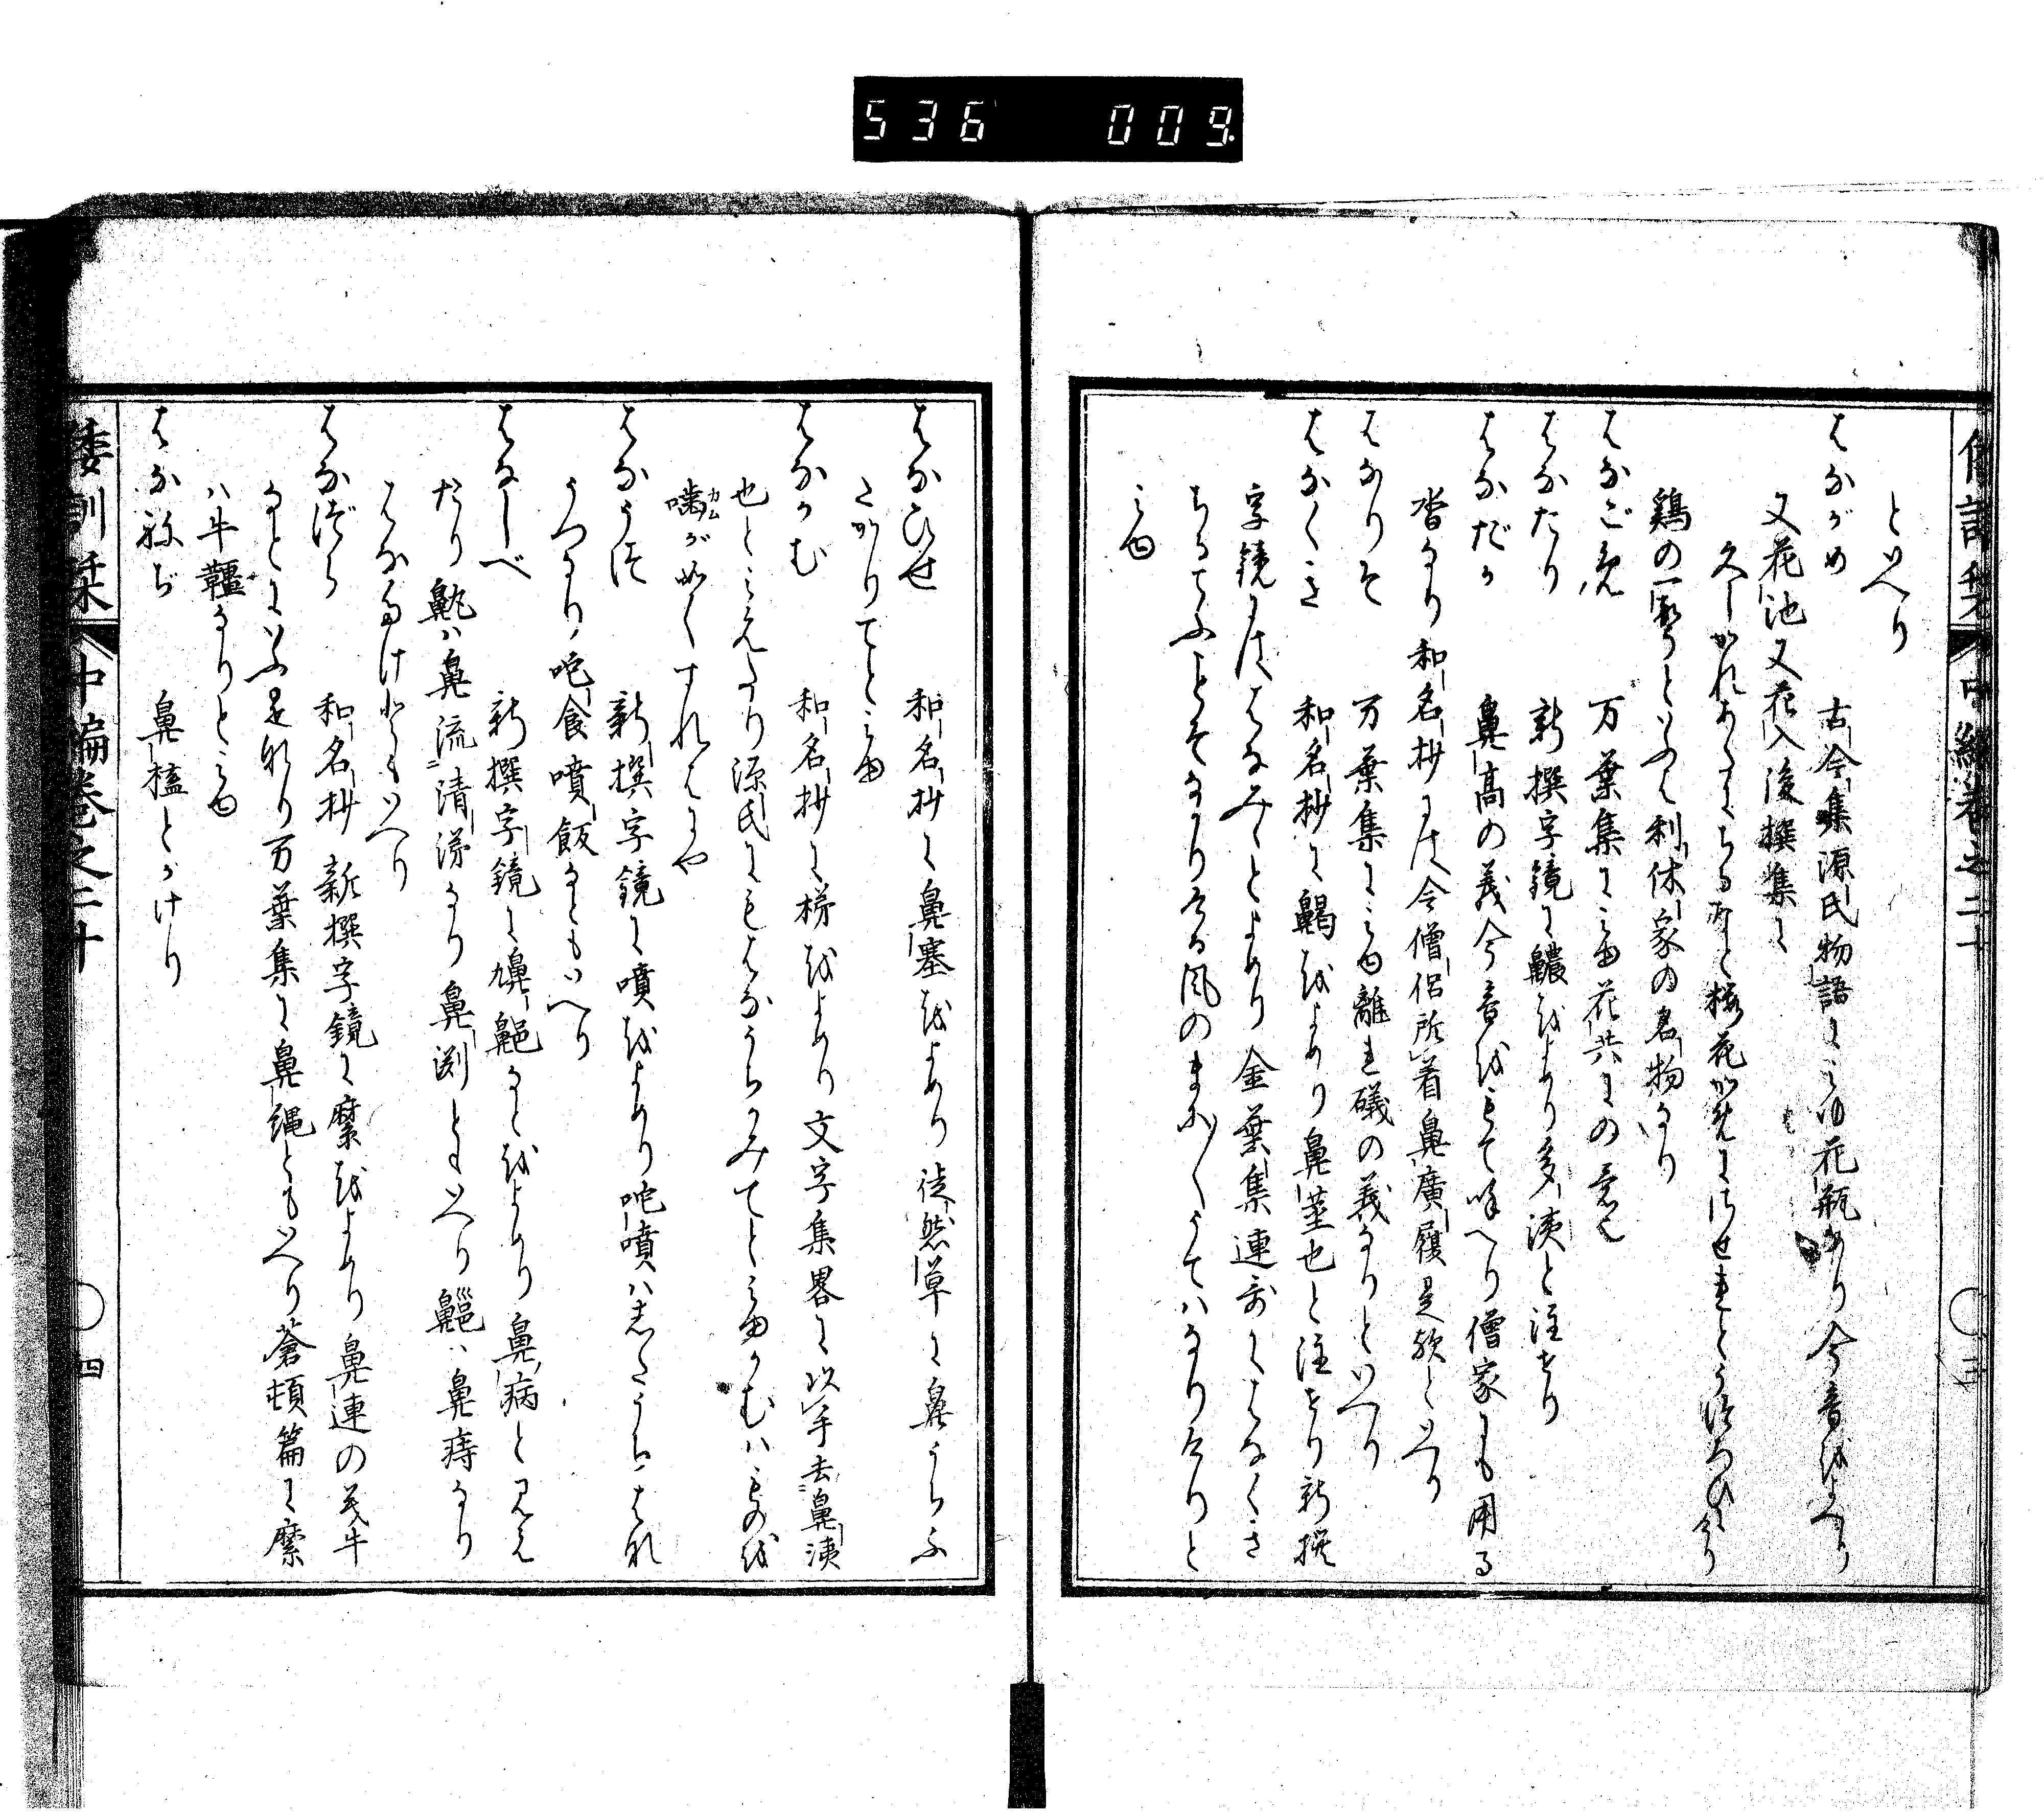 536 009
といへり
はながめ 古今集源氏物語にみゆ花瓶なり今音をよへり
又花池又花入後撰集に
久しかれあだにちるなと桜花かめにさせれどうつろひにけり
鶏の一聲といふも利休家の名物なり
はなごめ 万葉集にみゆ花共にの意也
はなたり 新撰字鏡に齈をよめり多洟と注せり
はなだか 鼻高の義今音をもて呼へり僧家にも用る
沓なり和名抄に今僧侶所着鼻廣履是歟といへり
はなりそ 万葉集にみゆ離れ礒の義なりといへり
はなくき 和名抄に齃をよめり鼻茎也と注せり新撰
字鏡にははなみねとよめり金葉集連歌にはなくき
ちるてふことそなかりける風のまに〳〵うてはなりけりと
みゆ
はなひせ 和名抄に鼻塞をよめり徒然草に鼻うちふ
さかりてとみゆ
はなかむ 和名抄に㧗をよめり文字集畧に以手去鼻洟
也とみえたり源氏にもはなうちかみてとみゆかむはものを
噛がごとくすればにや
はなうつ 新撰字鏡に噴をよめり咜噴はしたうちはな
うつなり咜食噴飯などもいへり
はなしべ 新撰字鏡に鼽齆などをよめり鼻病と見え
たり鼽は鼻流清涕なり鼻渕ともいへり齆は鼻痔なり
はなたけともいへり
はなづら 和名抄新撰字鏡に縻をよめり鼻連の義牛
などにいふ是なり万葉集に鼻縄ともいへり蒼頡篇に縻
は牛韁なりとみゆ
はなねぢ 鼻櫨とかけり
倭訓栞 中編巻之二十 四
倭訓栞 中編巻之二十 三